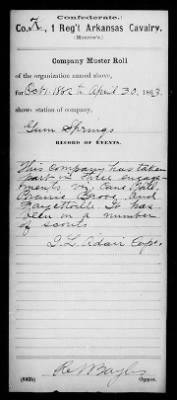 Confederate.
Co. K, 1 Reg't Arkansas Cavalry.
(Monroe's.)
Company Muster Roll
of the organization named above,
for Oct. 1862 to April 30, 1863.
show station of company,
Elm Springs
RECORD OF EVENTS.
This Company has taken
part in three engage-
ments viz Cane Hill,
Prairie Grove and
Fayetteville It has
been on a number
of scouts
Adair Capt.
Copyist.